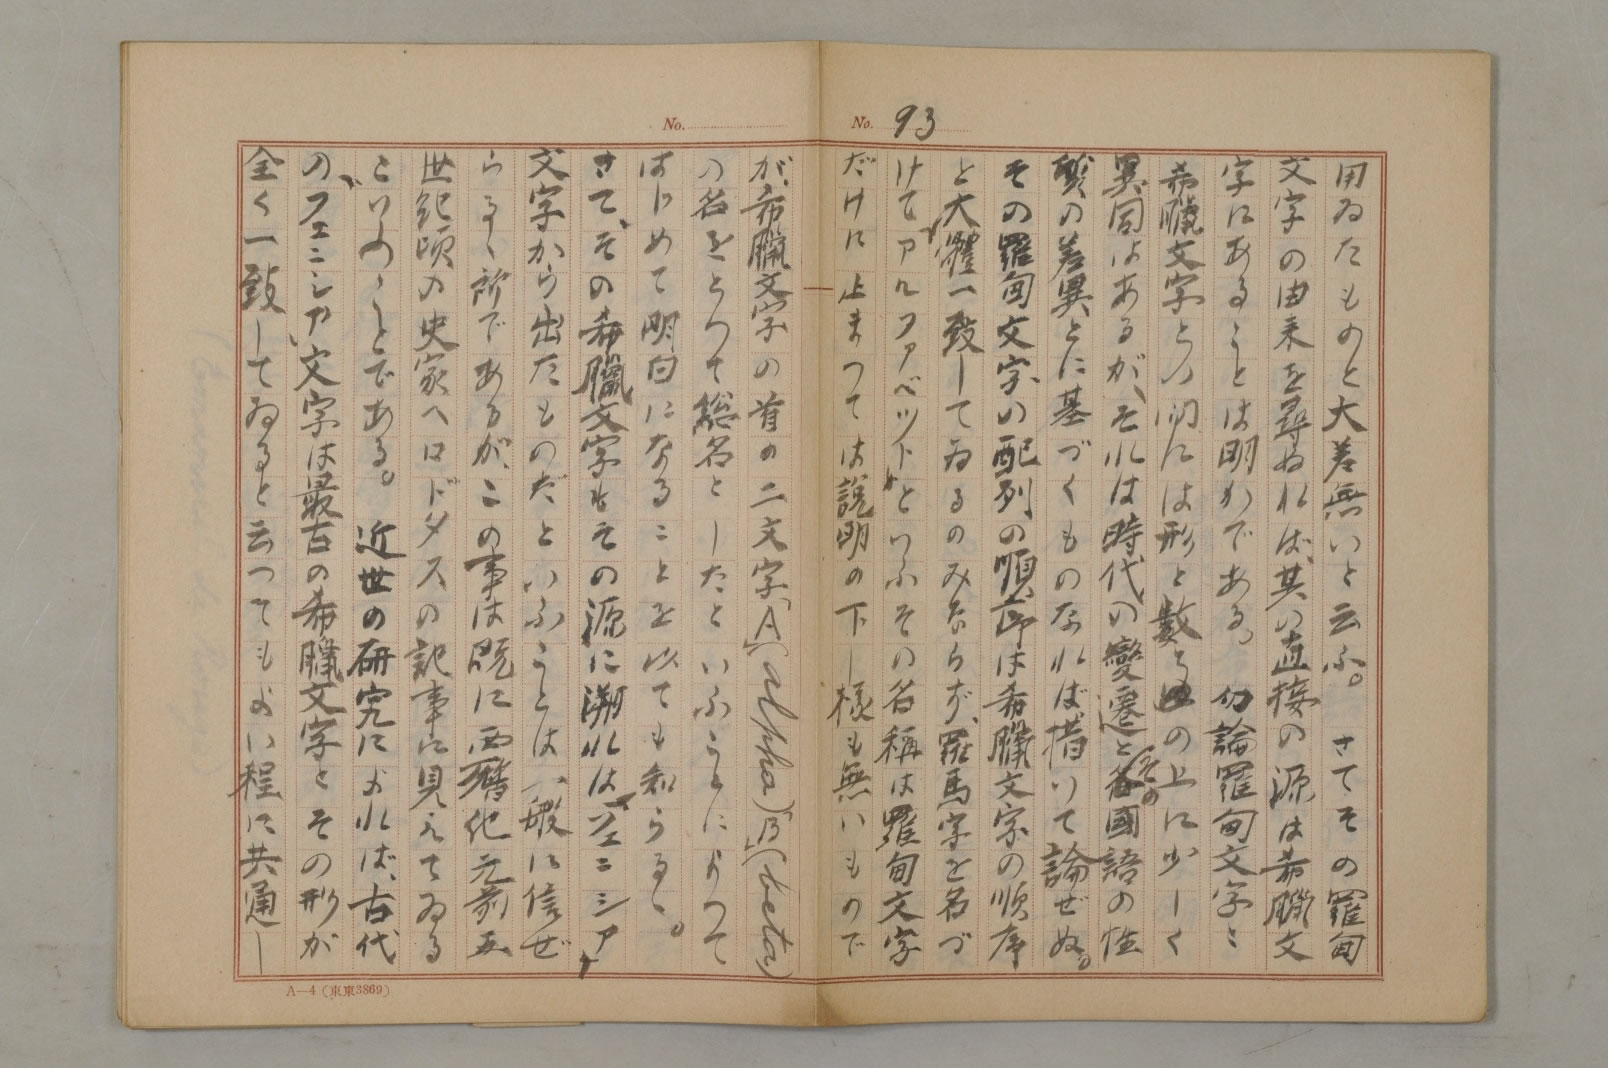 No. 93
用ゐたものと大差無いと云ふ。さてその羅甸
文字の由来を尋ぬれば、其の直接の源は希臘文
字にあることは明かである。勿論羅甸文字と
希臘文字との間には形と數との上に少しく
異同はあるが、それは時代の變遷と各國語のその性
質の差異とに基づくものなれば措いて論ぜぬ。
その羅甸文字の配列の順序は希臘文字の順序
と大體一致してゐるのみならず、羅馬字を名づ
けて「アルファベット」といふその名稱は羅甸文字
だけに止まつては說明の下し樣も無いもので
No.
が、希臘文字の首の二文字、「A」(alpha)「B」(beta)
の名をとつて総名としたといふことによつて
はじめて明白になることを以ても知らるゝ。
さて、その希臘文字もその源に溯れは「フェニシア」
文字から出たものだといふことは一般に信ぜ
らるゝ所であるが、この事は既に西曆紀元前五
世紀頃の史家ヘロドタスの記事に見えてゐる
といふことである。近世の研究によれば、古代
の「フェニシア」文字は最古の希臘文字とその形が
全く一致してゐると云つてもよい程に共通し
A—4 (東東3869)